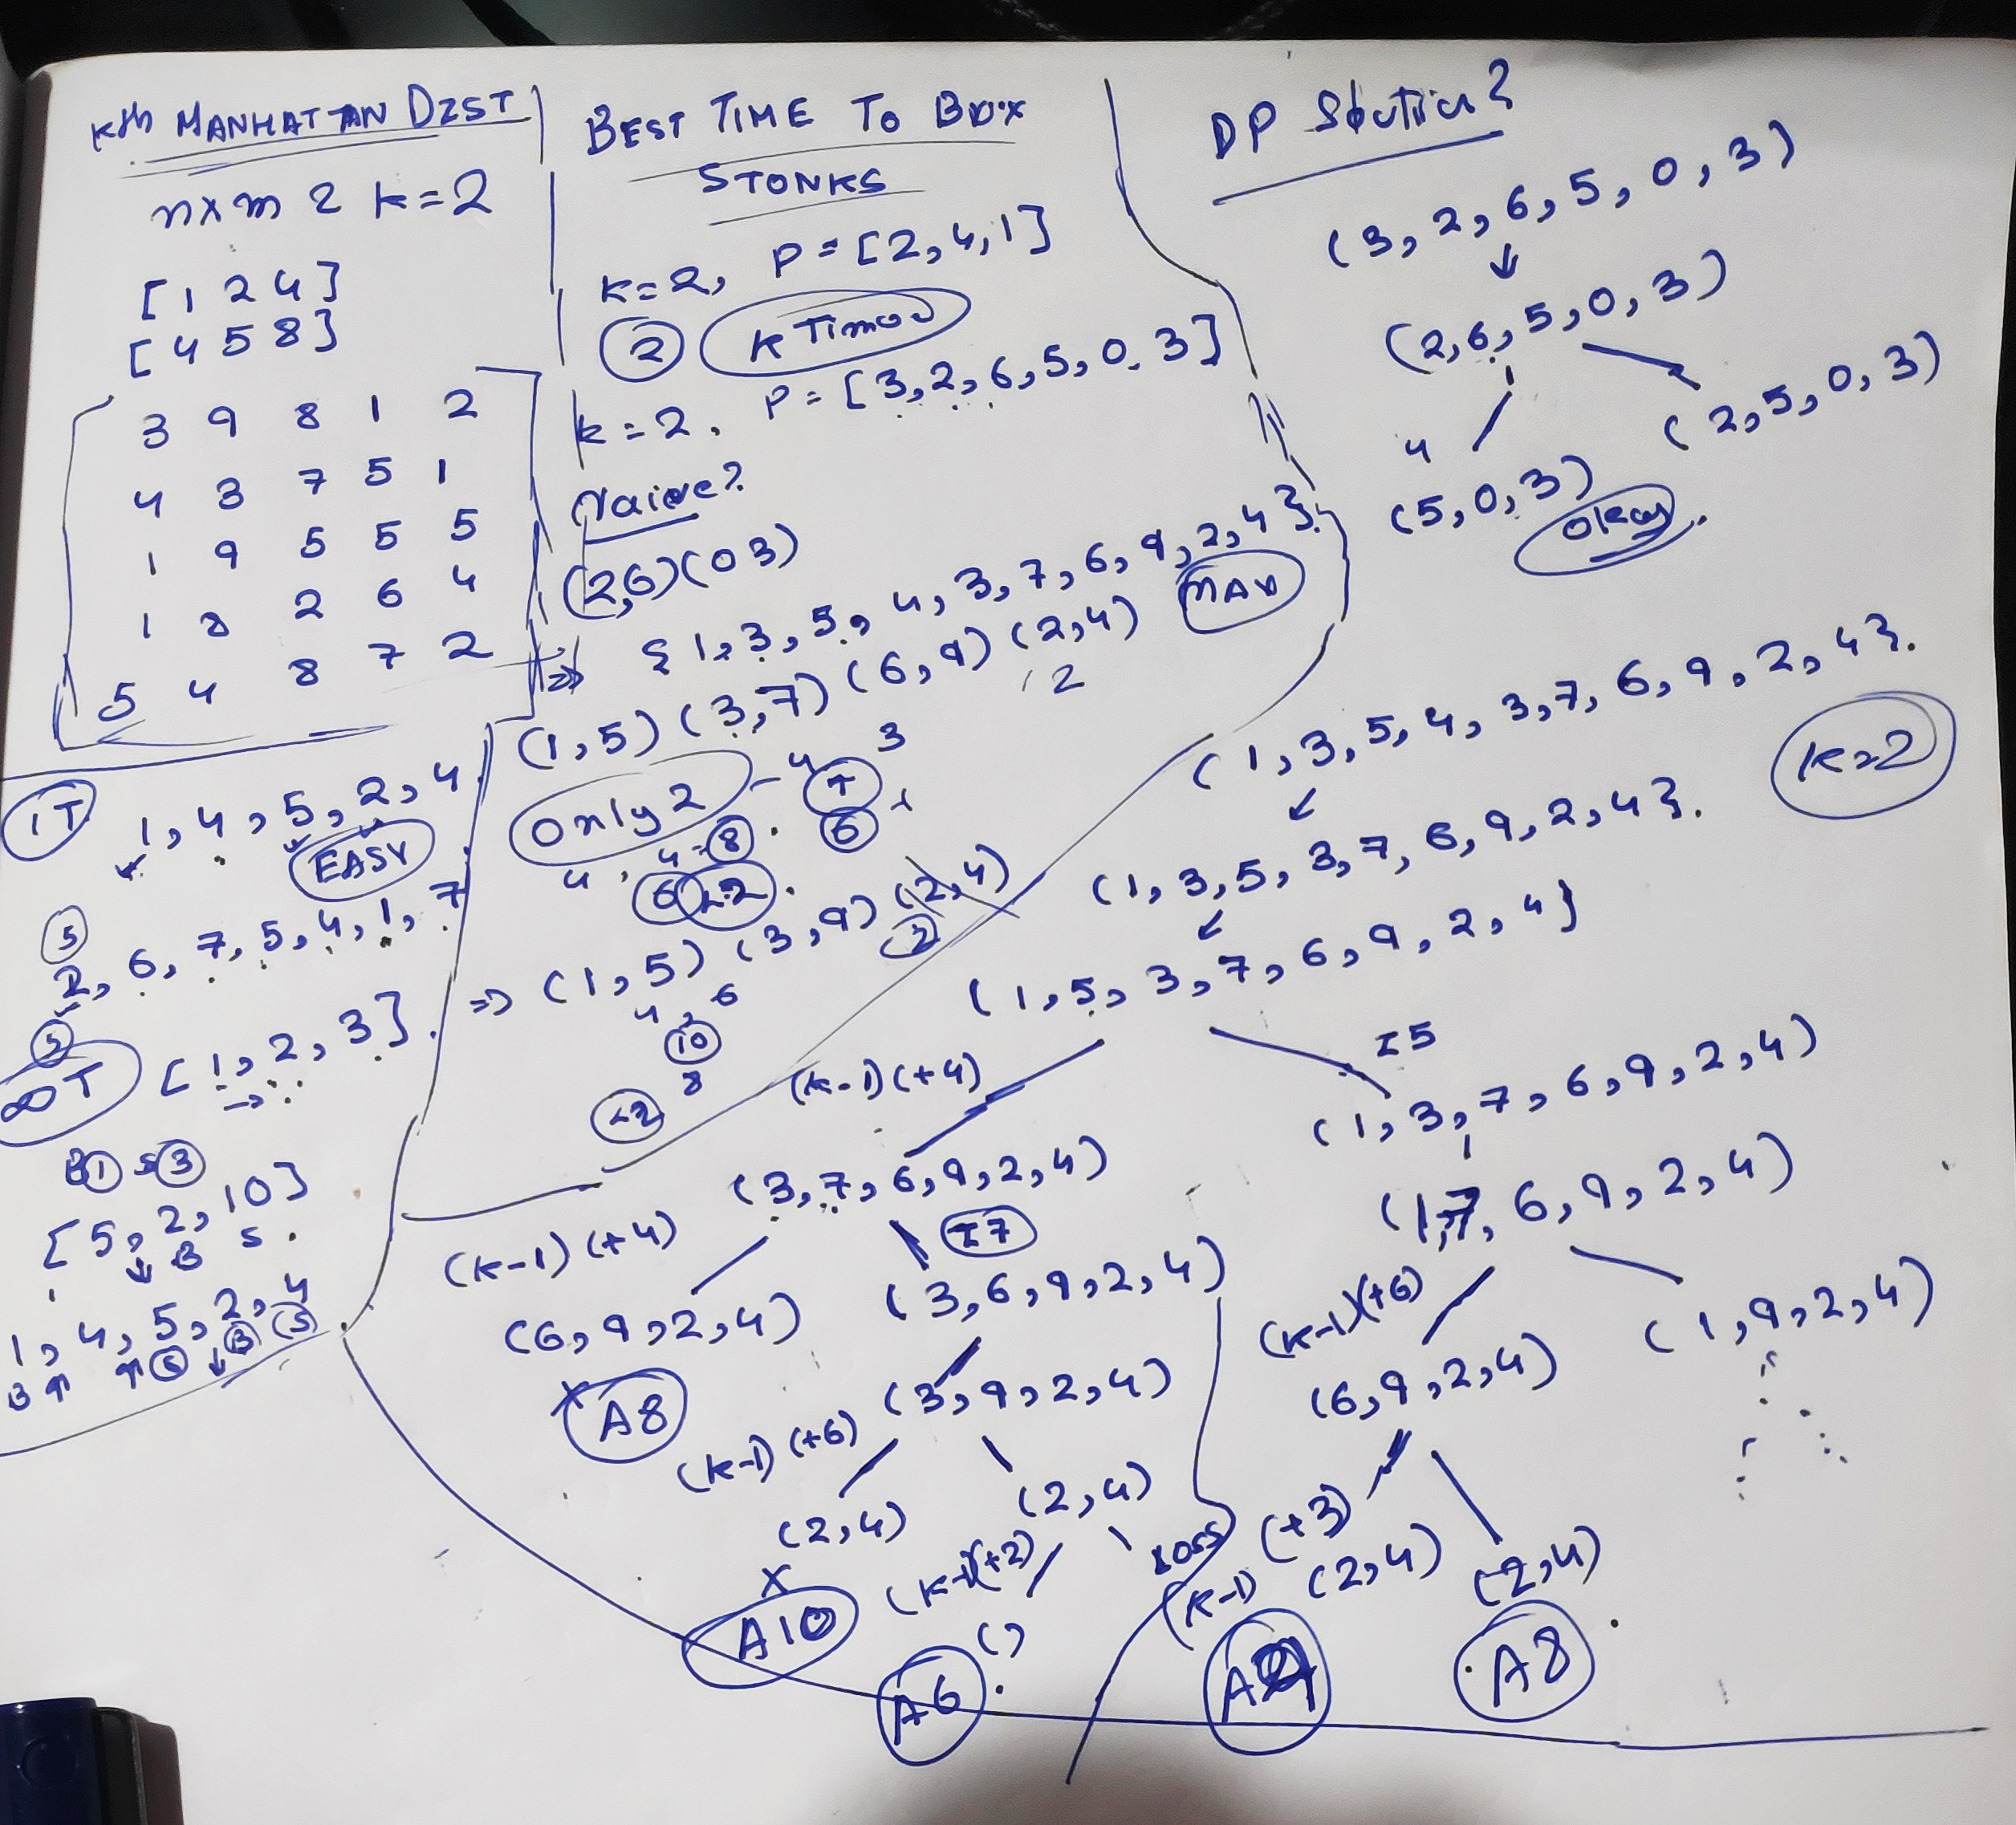 kth MANHATTAN DIST
nxm 2 k=2
[1 2 4]
[4 5 8]
3 9 8 1 2
4 3 7 5 1
1 9 5 5 5
1 8 2 6 4
5 4 8 7 2
1T
1, 4, 5, 2, 4
EASY
5
2, 6, 7, 5, 4, 1, 7
∞T [1, 2, 3].
B① S③
[5, 2, 10]
B S.
1, 4, 5, 2, 4
BEST TIME TO
STONKS
k=2, P=[2,4,1]
2
k=2, P=[3,2,6,5,0,3]
Naive?
(2,6)(0 3)
=> {1,3,5,4,3,7,6,9,2,4}.
(1,5)(3,7)(6,9)(2,4)
2
Only 2
4 3
8
6
=> (1,5)(3,9)(2,4)
4, 6
2
10
8
DP
(3,2,6,5,0,3)
(2,6,5,0,3)
4
(5,0,3) (2,5,0,3)
Okay.
(1,3,5,4,3,7,6,9,2,4}.
k=2
(1,3,5,3,7,6,9,2,4}.
(1,5,3,7,6,9,2,4}
(k-1)(+4) I5
(3,7,6,9,2,4) (1,3,7,6,9,2,4)
(k-1)(+4) I7
(1,7,6,9,2,4)
(6,9,2,4) (3,6,9,2,4)
(k-1)(+6)
A8
(3,9,2,4) (6,9,2,4) (1,9,2,4)
(k-1)(+6)
(2,4) (2,4)
x
(k-1)(+2) Loss
(k-1) (+3)
(2,4) (2,4)
A10
()
A6
A8